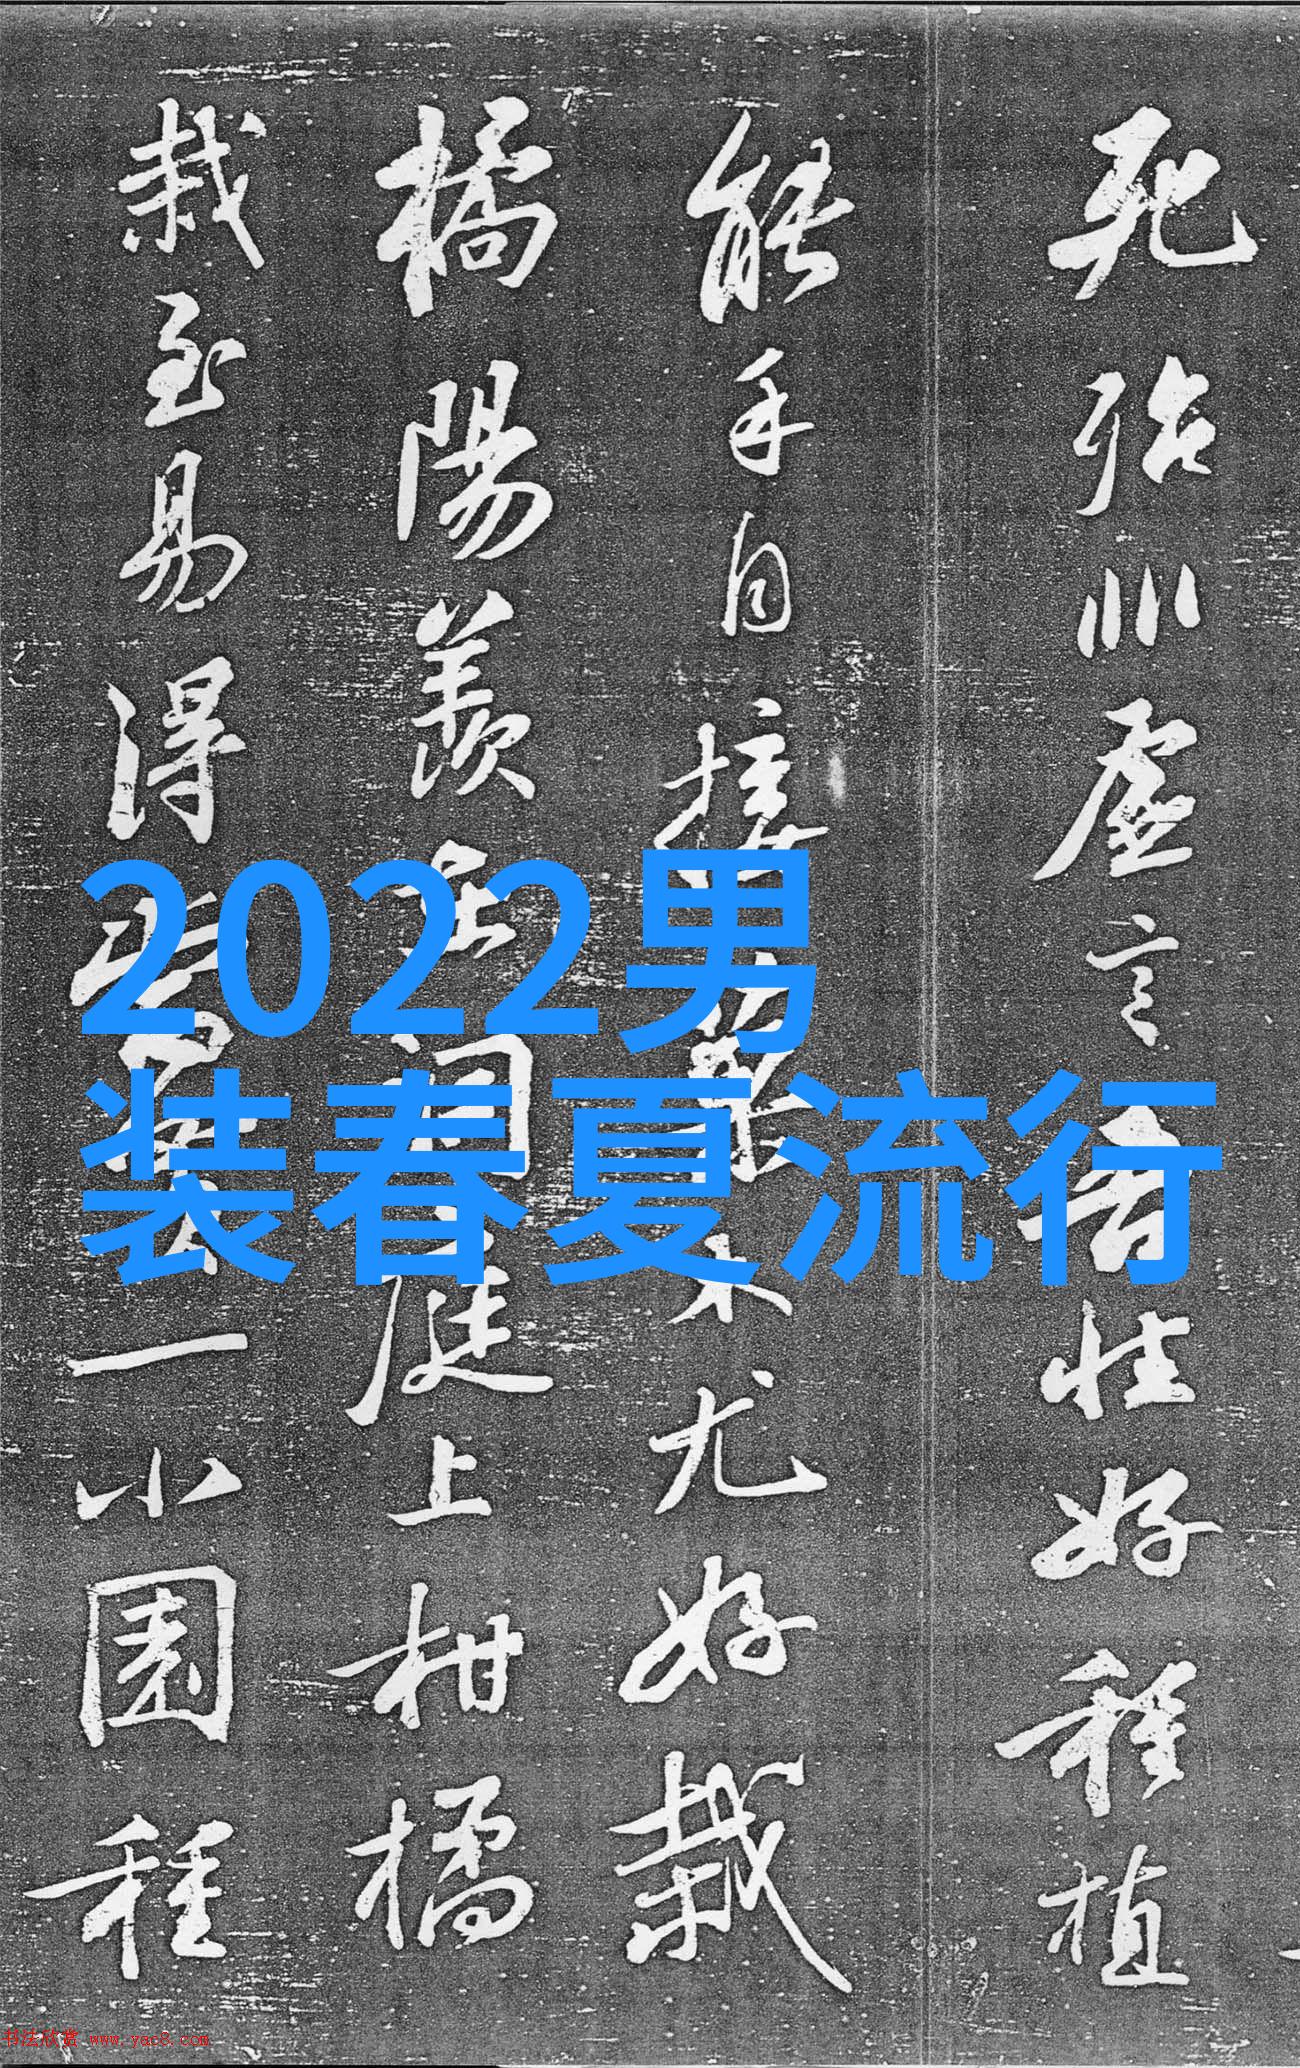 死殆非虛言吾性好種植
能手自接菓木尤好栽
橘陽羨在洞庭上柑橘
栽至易得當買一小園種
2022男
装春夏流行
书法欣赏 www.yac8.com